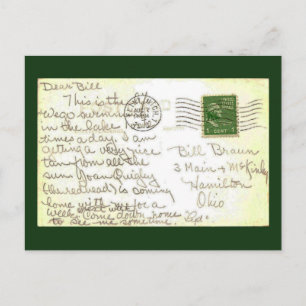 Dear Bill
This is the
We go swimming
in the lake
times a day. I am
getting a very nice
tan from all the
sun. Joan Quigley
(as redhead) is coming
home with for a
week. Come down home
to see me sometime.
1 CENT 1
Bill Braun
3 Main + McKinley
Hamilton
Ohio